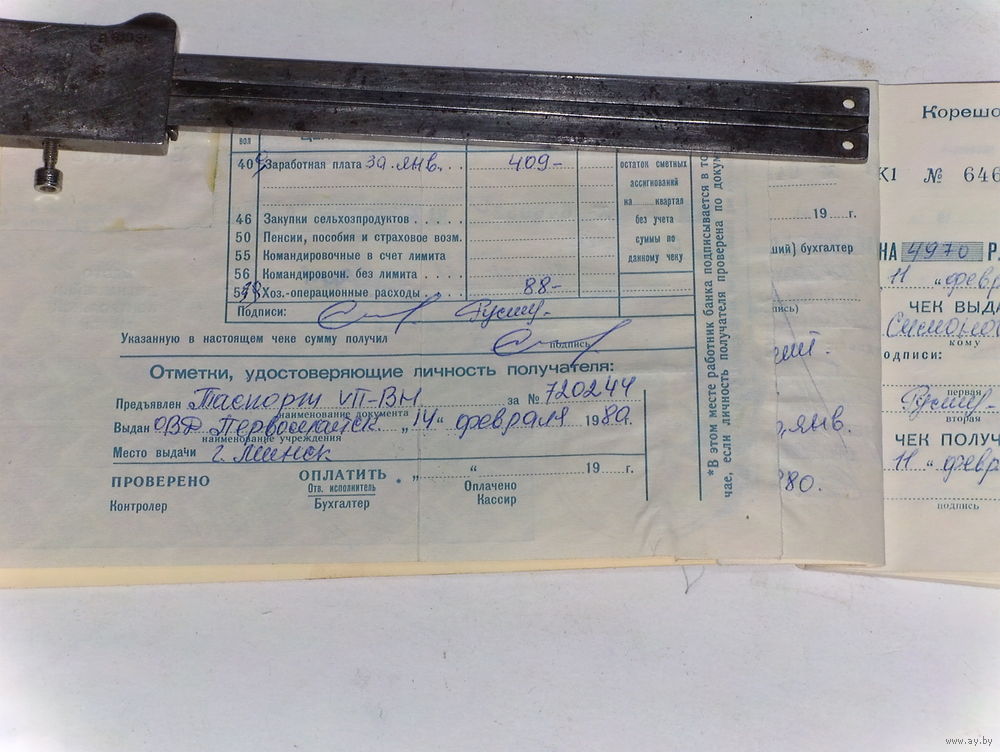 вол
40 Заработная плата за янв. . . 409-
46 Закупки сельхозпродуктов . . . . .
50 Пенсии, пособия и страховое возм.
55 Командировочные в счет лимита
56 Командировочн. без лимита . . . .
Хоз.-операционные расходы . . . . 88-
остаток сметных
ассигнований
на ...... квартал
без учета
суммы по
данному чеку
Подписи:
Указанную в настоящем чеке сумму получил
подпись
Отметки, удостоверяющие личность получателя:
Предъявлен Паспорт VII-ВН за № 720244
наименование документа
Выдан ОВД Первомайск. „14“ февраля 1980.
наименование учреждения
Место выдачи г. Минск
ПРОВЕРЕНО
Контролер
ОПЛАТИТЬ
Отв. исполнитель
Бухгалтер
„ “ 19 г.
Оплачено
Кассир
*В этом месте работник банка подписывается в
чае, если личность получателя проверена по
19 г.
бухгалтер
янв.
80.
Корешо
К1 № 646
НА 4970 Р
11 „февр
ЧЕК ВЫДА
кому
одписи:
первая
вторая
ЧЕК ПОЛУЧ
11 „февр
подпись
www.ay.by